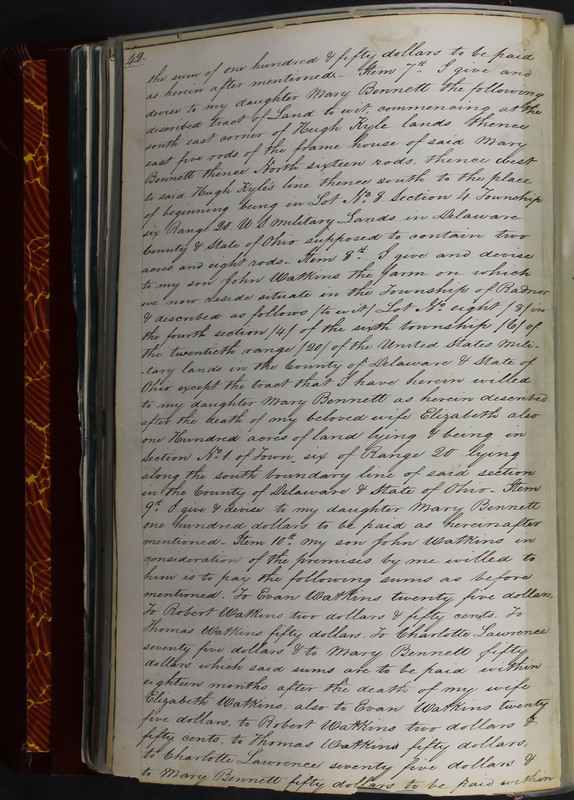 42.
the sum of one hundred & fifty dollars to be paid
as herein after mentioned - Item 7th I give and
devise to my daughter Mary Bennett the following
described tract of Land to wit, commencing at the
south east corner of Hugh Kyle lands thence
east five rods of the frame house of said Mary
Bennett thence North sixteen rods, thence west
to said Hugh Kyle's line thence south to the place
of beginning being in Lot No 8 Section 4 Township
six Range 20. U S Military Lands in Delaware
County & State of Ohio supposed to contain two
acres and eight rods - Item 8th I give and devise
to my son John Watkins the farm on which
we now reside situate in the Township of Radnor
& described as follows /to wit/ Lot No eight /8/ in
the fourth section /4/ of the sixth township /6/ of
the twentieth range /20/ of the United States Mili-
-tary lands in the County of Delaware & State of
Ohio except the tract that I have herein willed
to my daughter Mary Bennett as herein described
after the death of my beloved wife Elizabeth also
one Hundred acres of land lying & being in
Section No 1 of Town- six of Range 20 lying
along the south boundary line of said section
in the County of Delaware & State of Ohio - Item
9th I give & devise to my daughter Mary Bennett
one hundred dollars to be paid as hereinafter
mentioned - Item 10th My son John Watkins in
consideration of the premises by me willed to
him is to pay the following sums as before
mentioned. To Evan Watkins twenty five dollars,
To Robert Watkins two dollars & fifty cents. To
Thomas Watkins fifty dollars. To Charlotte Lawrence
seventy five dollars & to Mary Bennett fifty
dollars which said sums are to be paid within
eighteen months after the death of my wife
Elizabeth Watkins, also to Evan Watkins twenty
five dollars, to Robert Watkins two dollars &
fifty cents, to Thomas Watkins fifty dollars,
to Charlotte Lawrence seventy five dollars &
to Mary Bennett fifty dollars to be paid within